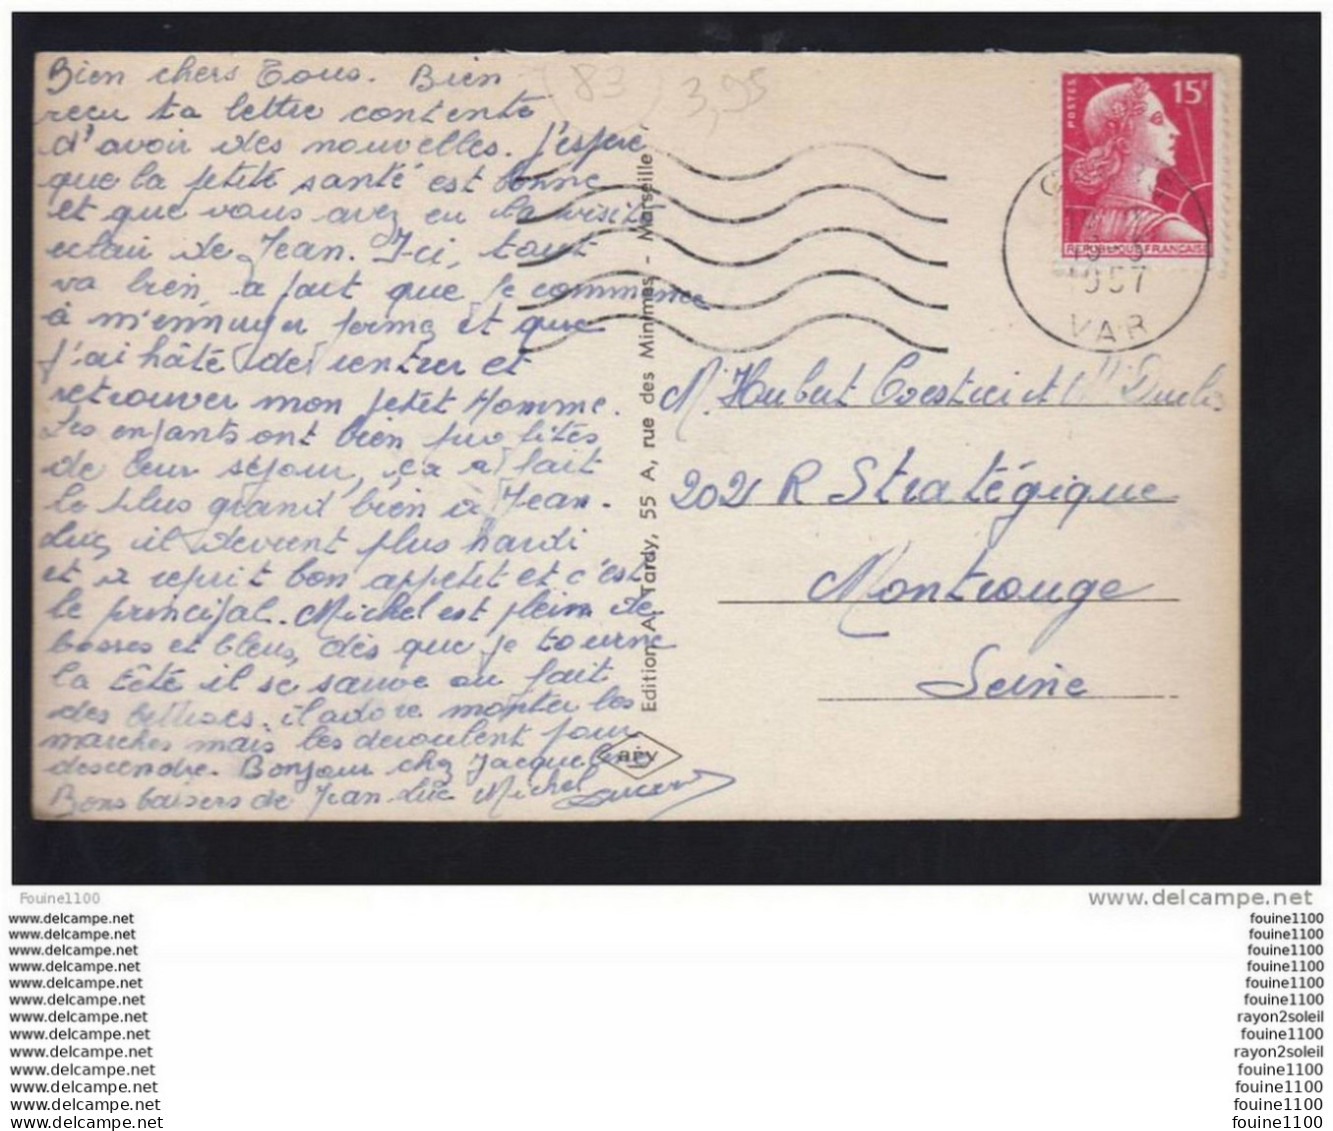 Bien chers Tous. Bien
reçu ta lettre contente
d'avoir des nouvelles. J'espère
que la petite santé est bonne
et que vous avez eu la visite
éclair de Jean. Ici, tout
va bien, a part que je commence
à m'ennuyer ferme et que
j'ai hâte de rentrer et
retrouver mon petit Homme.
Les enfants ont bien profités
de leur séjour, ça a fait
le plus grand bien à Jean-
Luc, il devient plus hardi
et a reprit bon appétit et c'est
le principal. Michel est plein de
bosses et bleus, dès que je tourne
la tête il se sauve ou fait
des bêtises. il adore monter les
marches mais les deroulent pour
descendre. Bonjour chez Jacqueline
Bons baisers de Jean Luc Michel
83
3,95
Edition A. Tardy, 55 A, rue des Minimes - Marseille
REV
POSTES
15F
REPUBLIQUE FRANÇAISE
1957
VAR
M. Hubert et
202 R Stratégique
Montrouge
Seine
Fouine1100
www.delcampe.net
www.delcampe.net
www.delcampe.net
www.delcampe.net
www.delcampe.net
www.delcampe.net
www.delcampe.net
www.delcampe.net
www.delcampe.net
www.delcampe.net
www.delcampe.net
www.delcampe.net
www.delcampe.net
www.delcampe.net
fouine1100
fouine1100
fouine1100
fouine1100
fouine1100
fouine1100
rayon2soleil
fouine1100
rayon2soleil
fouine1100
fouine1100
fouine1100
fouine1100